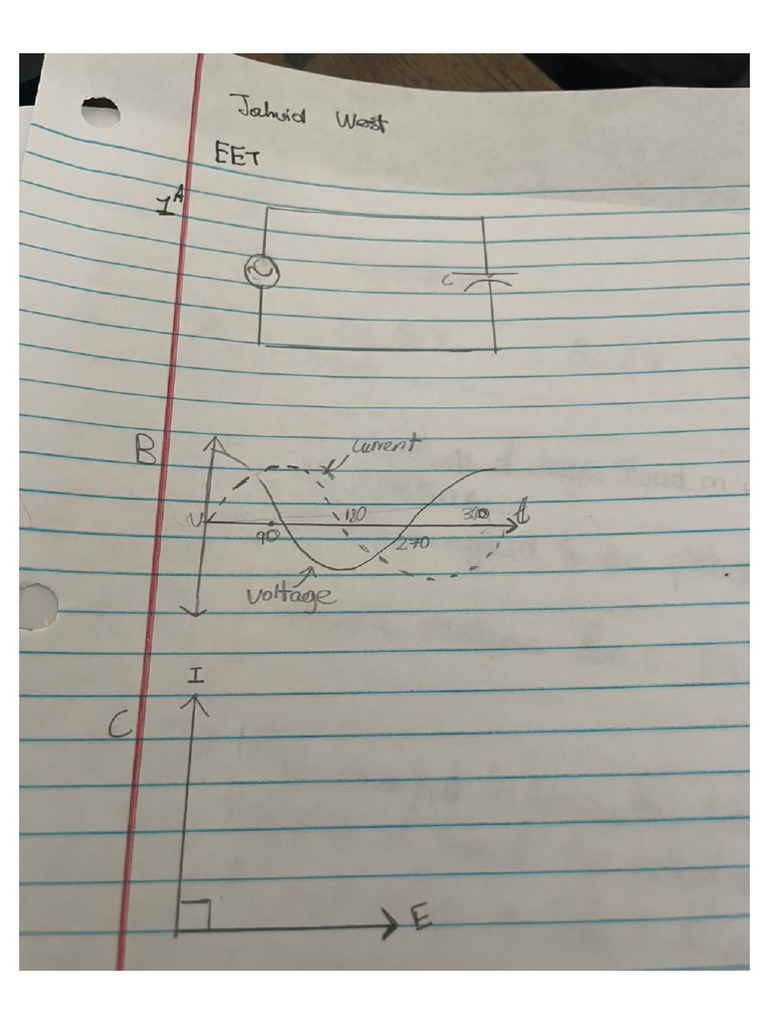 Jahvid West
EET
1A
C
B
current
V
90
180
270
360
t
voltage
I
C
E